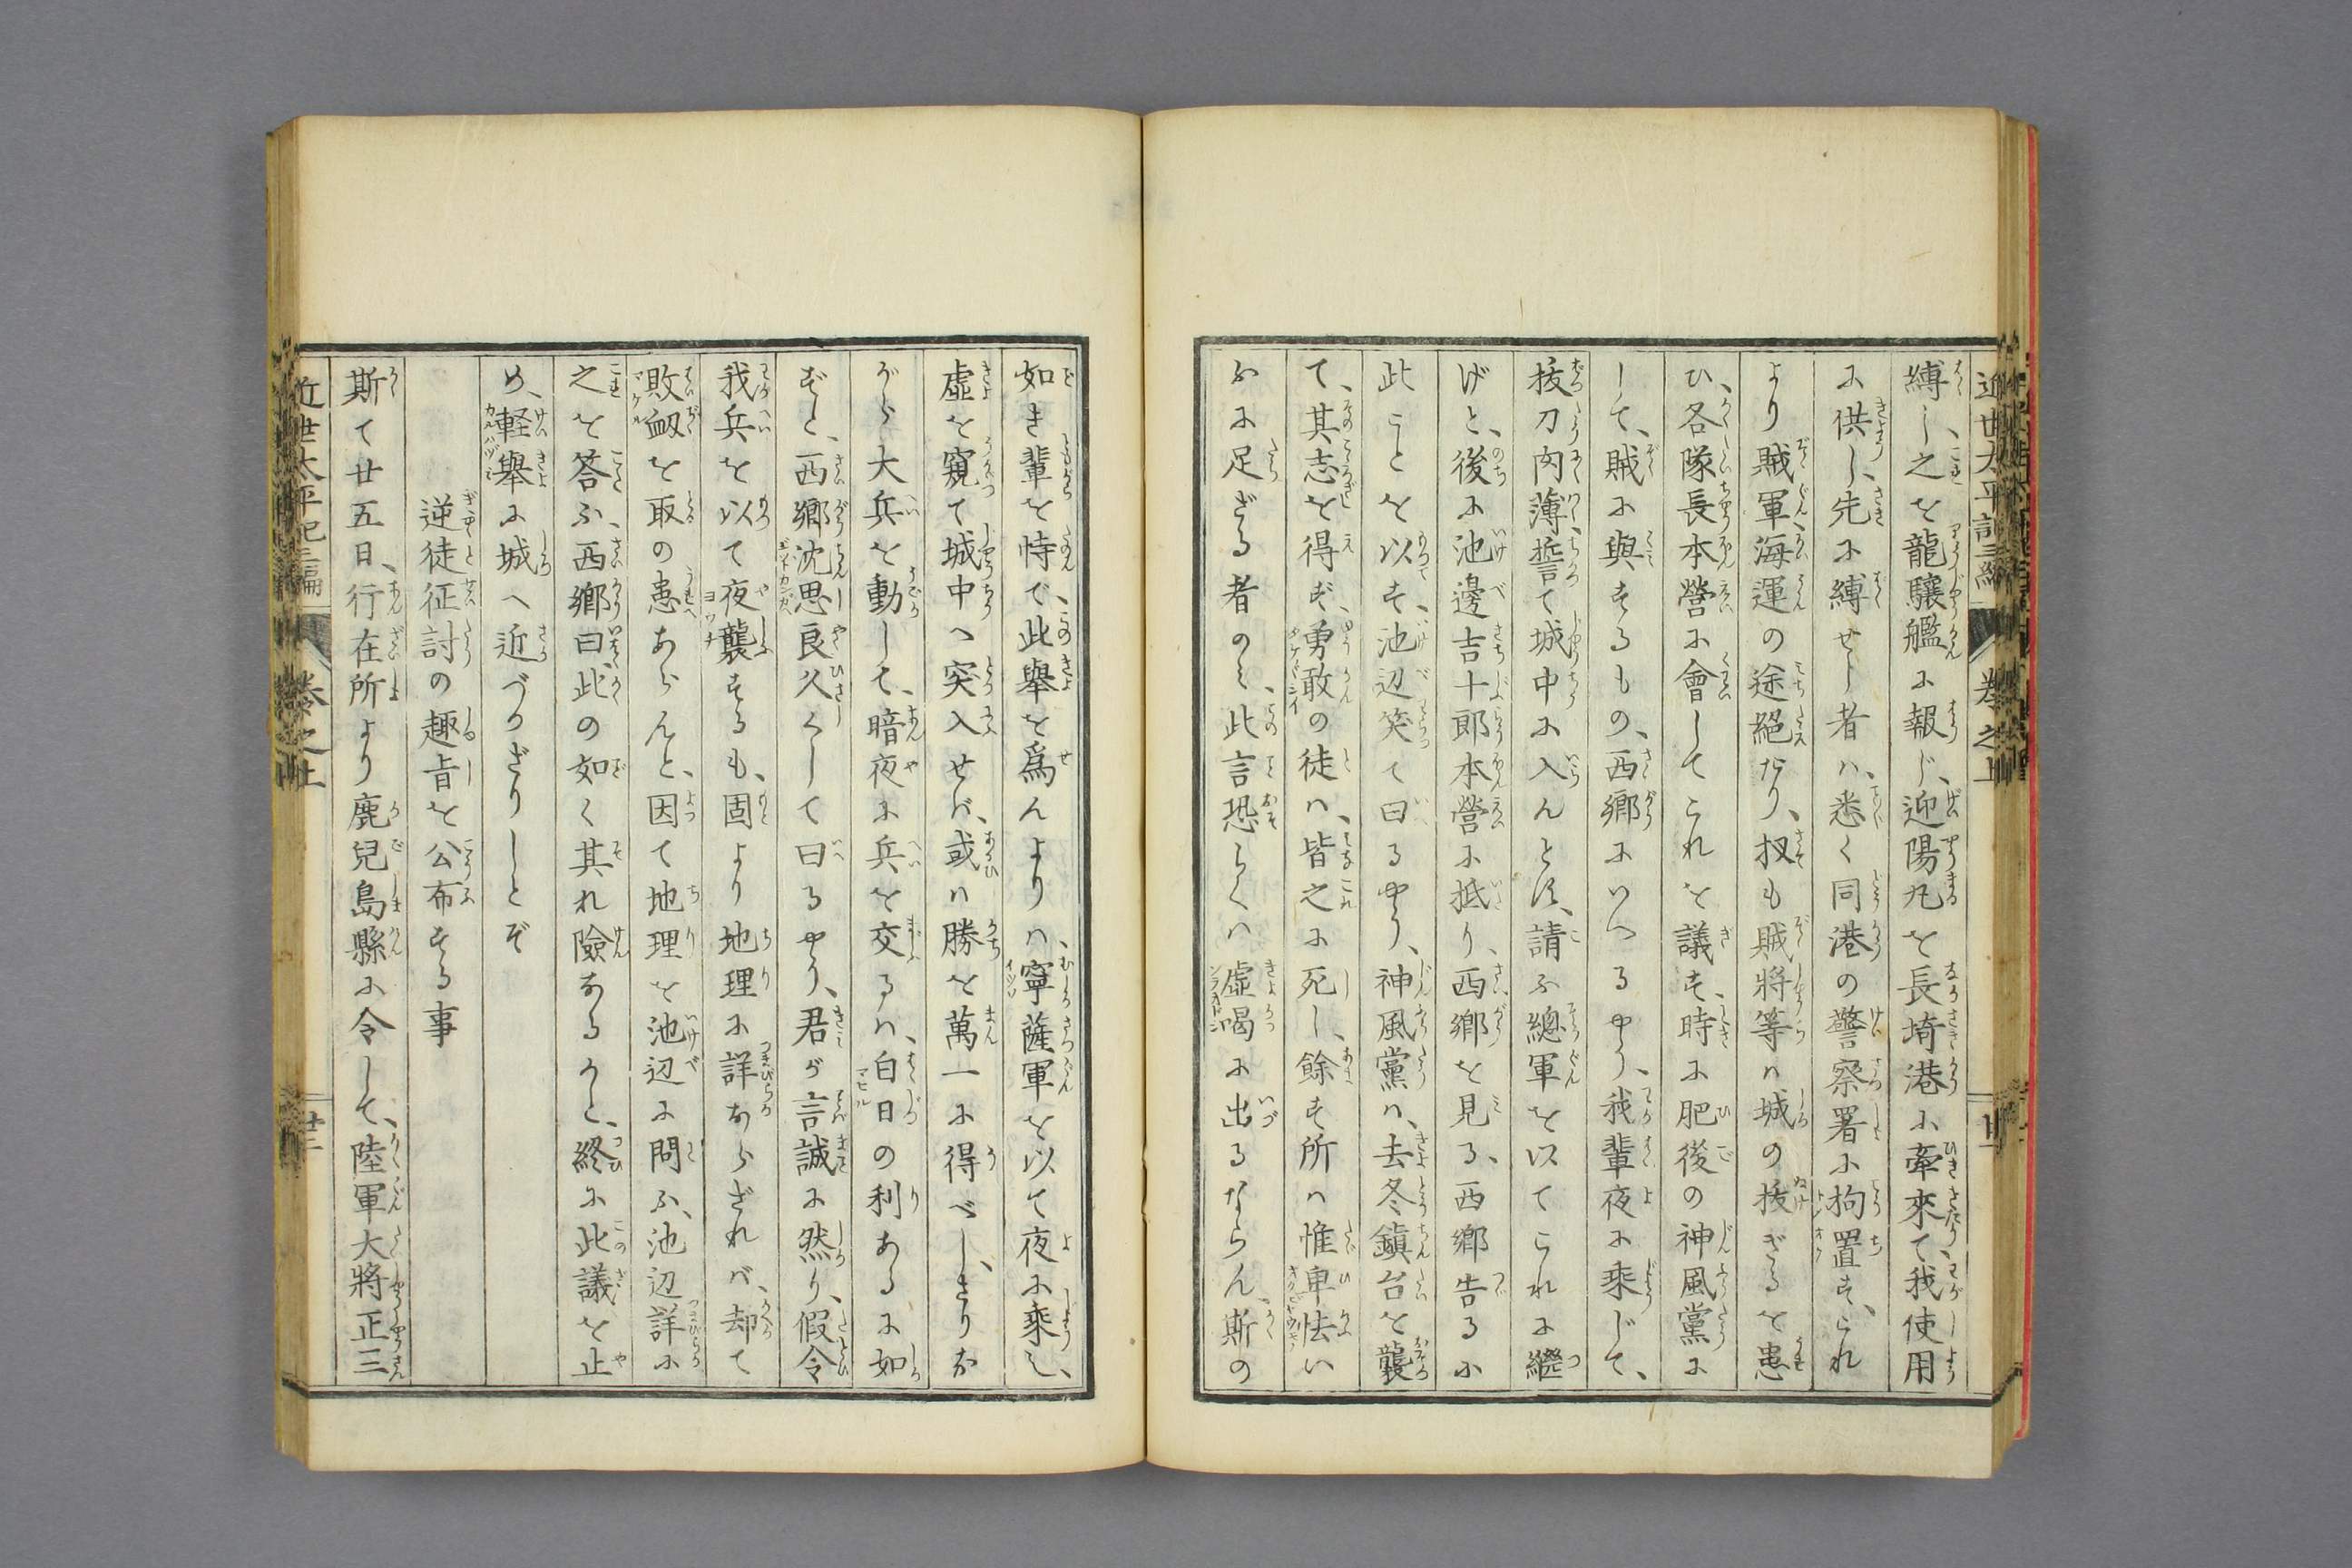 縛し、之を龍驤艦に報じ、迎陽丸を長埼港に牽來て我使用
に供し、先に縛せし者ハ、悉く同港の警察署に拘置す、られ
より賊軍、海運の途絕たり、扨も賊將等ハ城の抜ざるを患
ひ、各隊長本營に會してこれを議す、時に肥後の神風黨に
して、賊に與するもの、西鄉にいへるやう、我輩夜に乘じて、
抜刀肉薄、誓て城中に入んとす、請ふ總軍を以てこれに繼
げと、後に池邊吉十郎本營に抵り、西鄉を見る、西鄉告るに
此ことを以す、池辺笑て曰るやう、神風黨ハ、去冬鎭台を襲
て、其志を得ず、勇敢の徒ハ、皆之に死し、餘す所ハ惟卑怯い
ふに足ざる者のミ、此言恐らくハ虛喝に出るならん、斯の
如き輩を恃で、此擧を爲んよりハ、寧薩軍を以て夜に乘じ、
虛を窺て城中へ突入せバ、或ハ勝を萬一に得べし、さりな
がら大兵を動して、暗夜に兵を交るハ、白日の利あるに如
ずと、西鄉沈思良久くして曰るやう、君が言誠に然り、假令
我兵を以て夜襲するも、固より地理に詳ならざれバ、却て
敗衂を取の患あらんと、因て地理を池辺に問ふ、池辺詳に
之を答ふ、西鄉曰、此の如く其れ險なるかと、終に此議を止
め、軽擧に城へ近づかざりしとぞ
逆徒征討の趣旨を公布する事
斯て廿五日、行在所より鹿兒島縣に令して、陸軍大將正三
近世太平記三編 卷之上